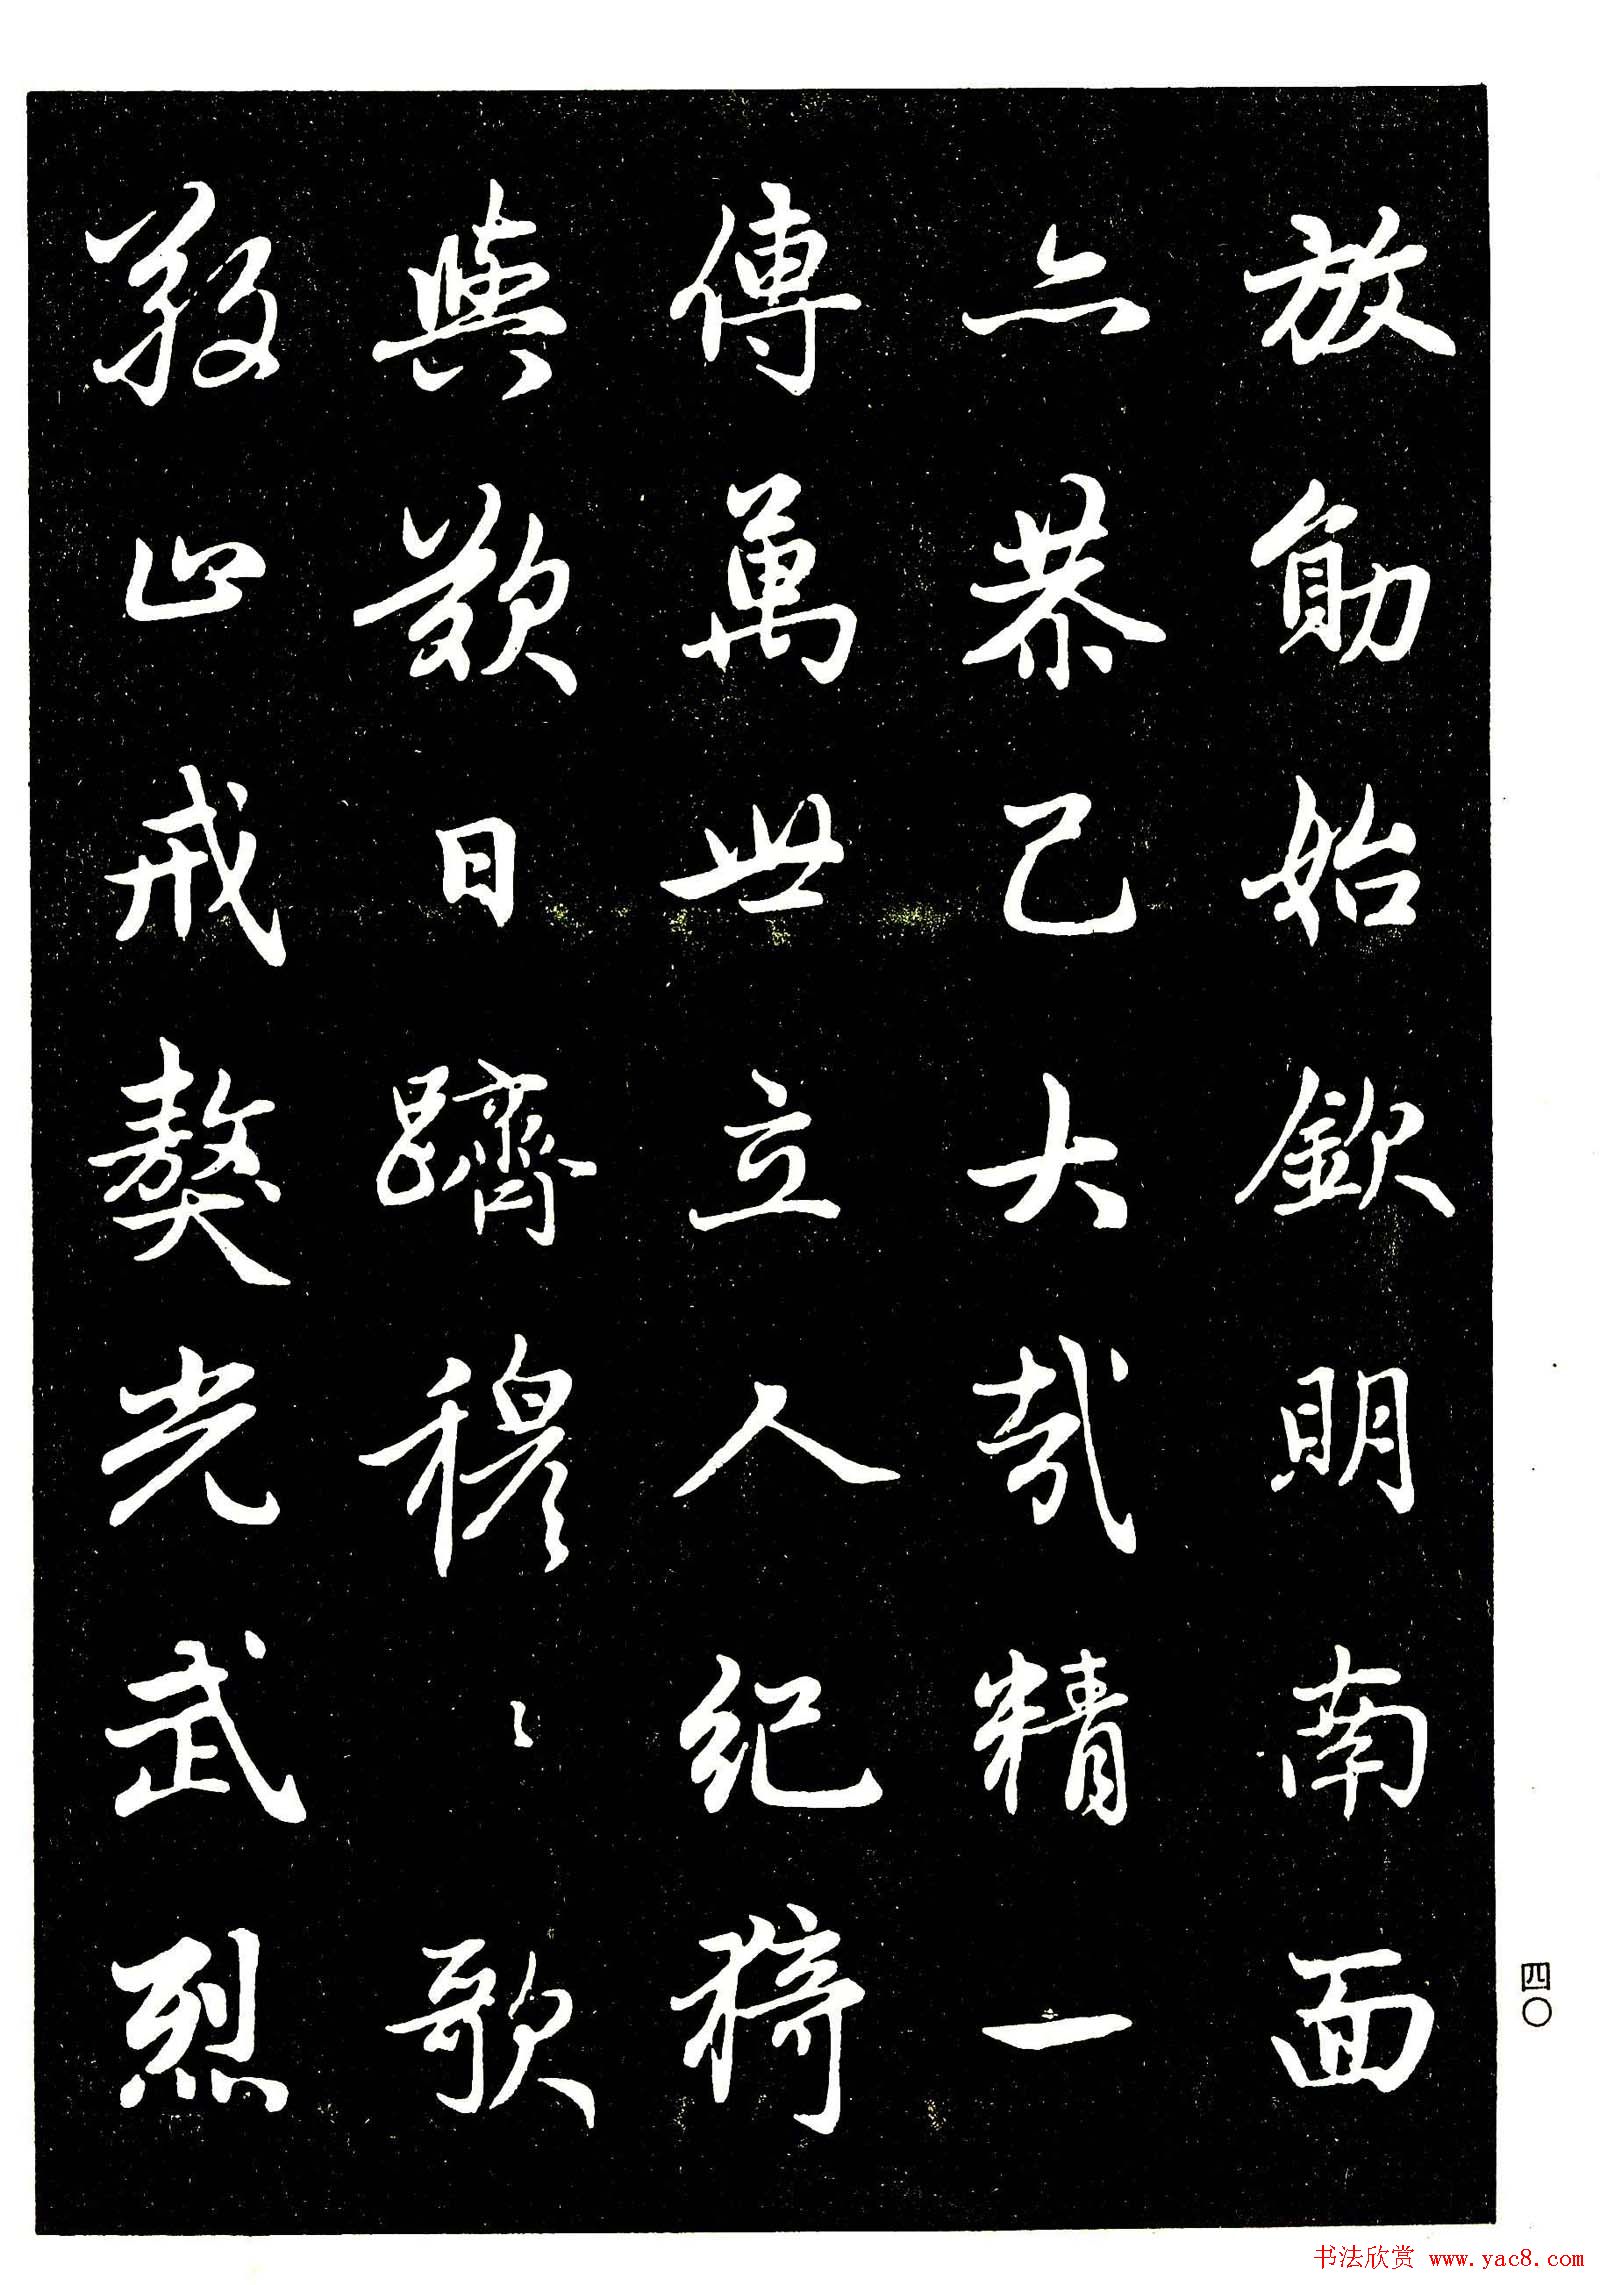 放勛始欽明南面
亦恭己大哉精一
傳萬世立人紀猗
與歎日躋穆〻歌
敬止戒獒光武烈
四〇
书法欣赏 www.yac8.com